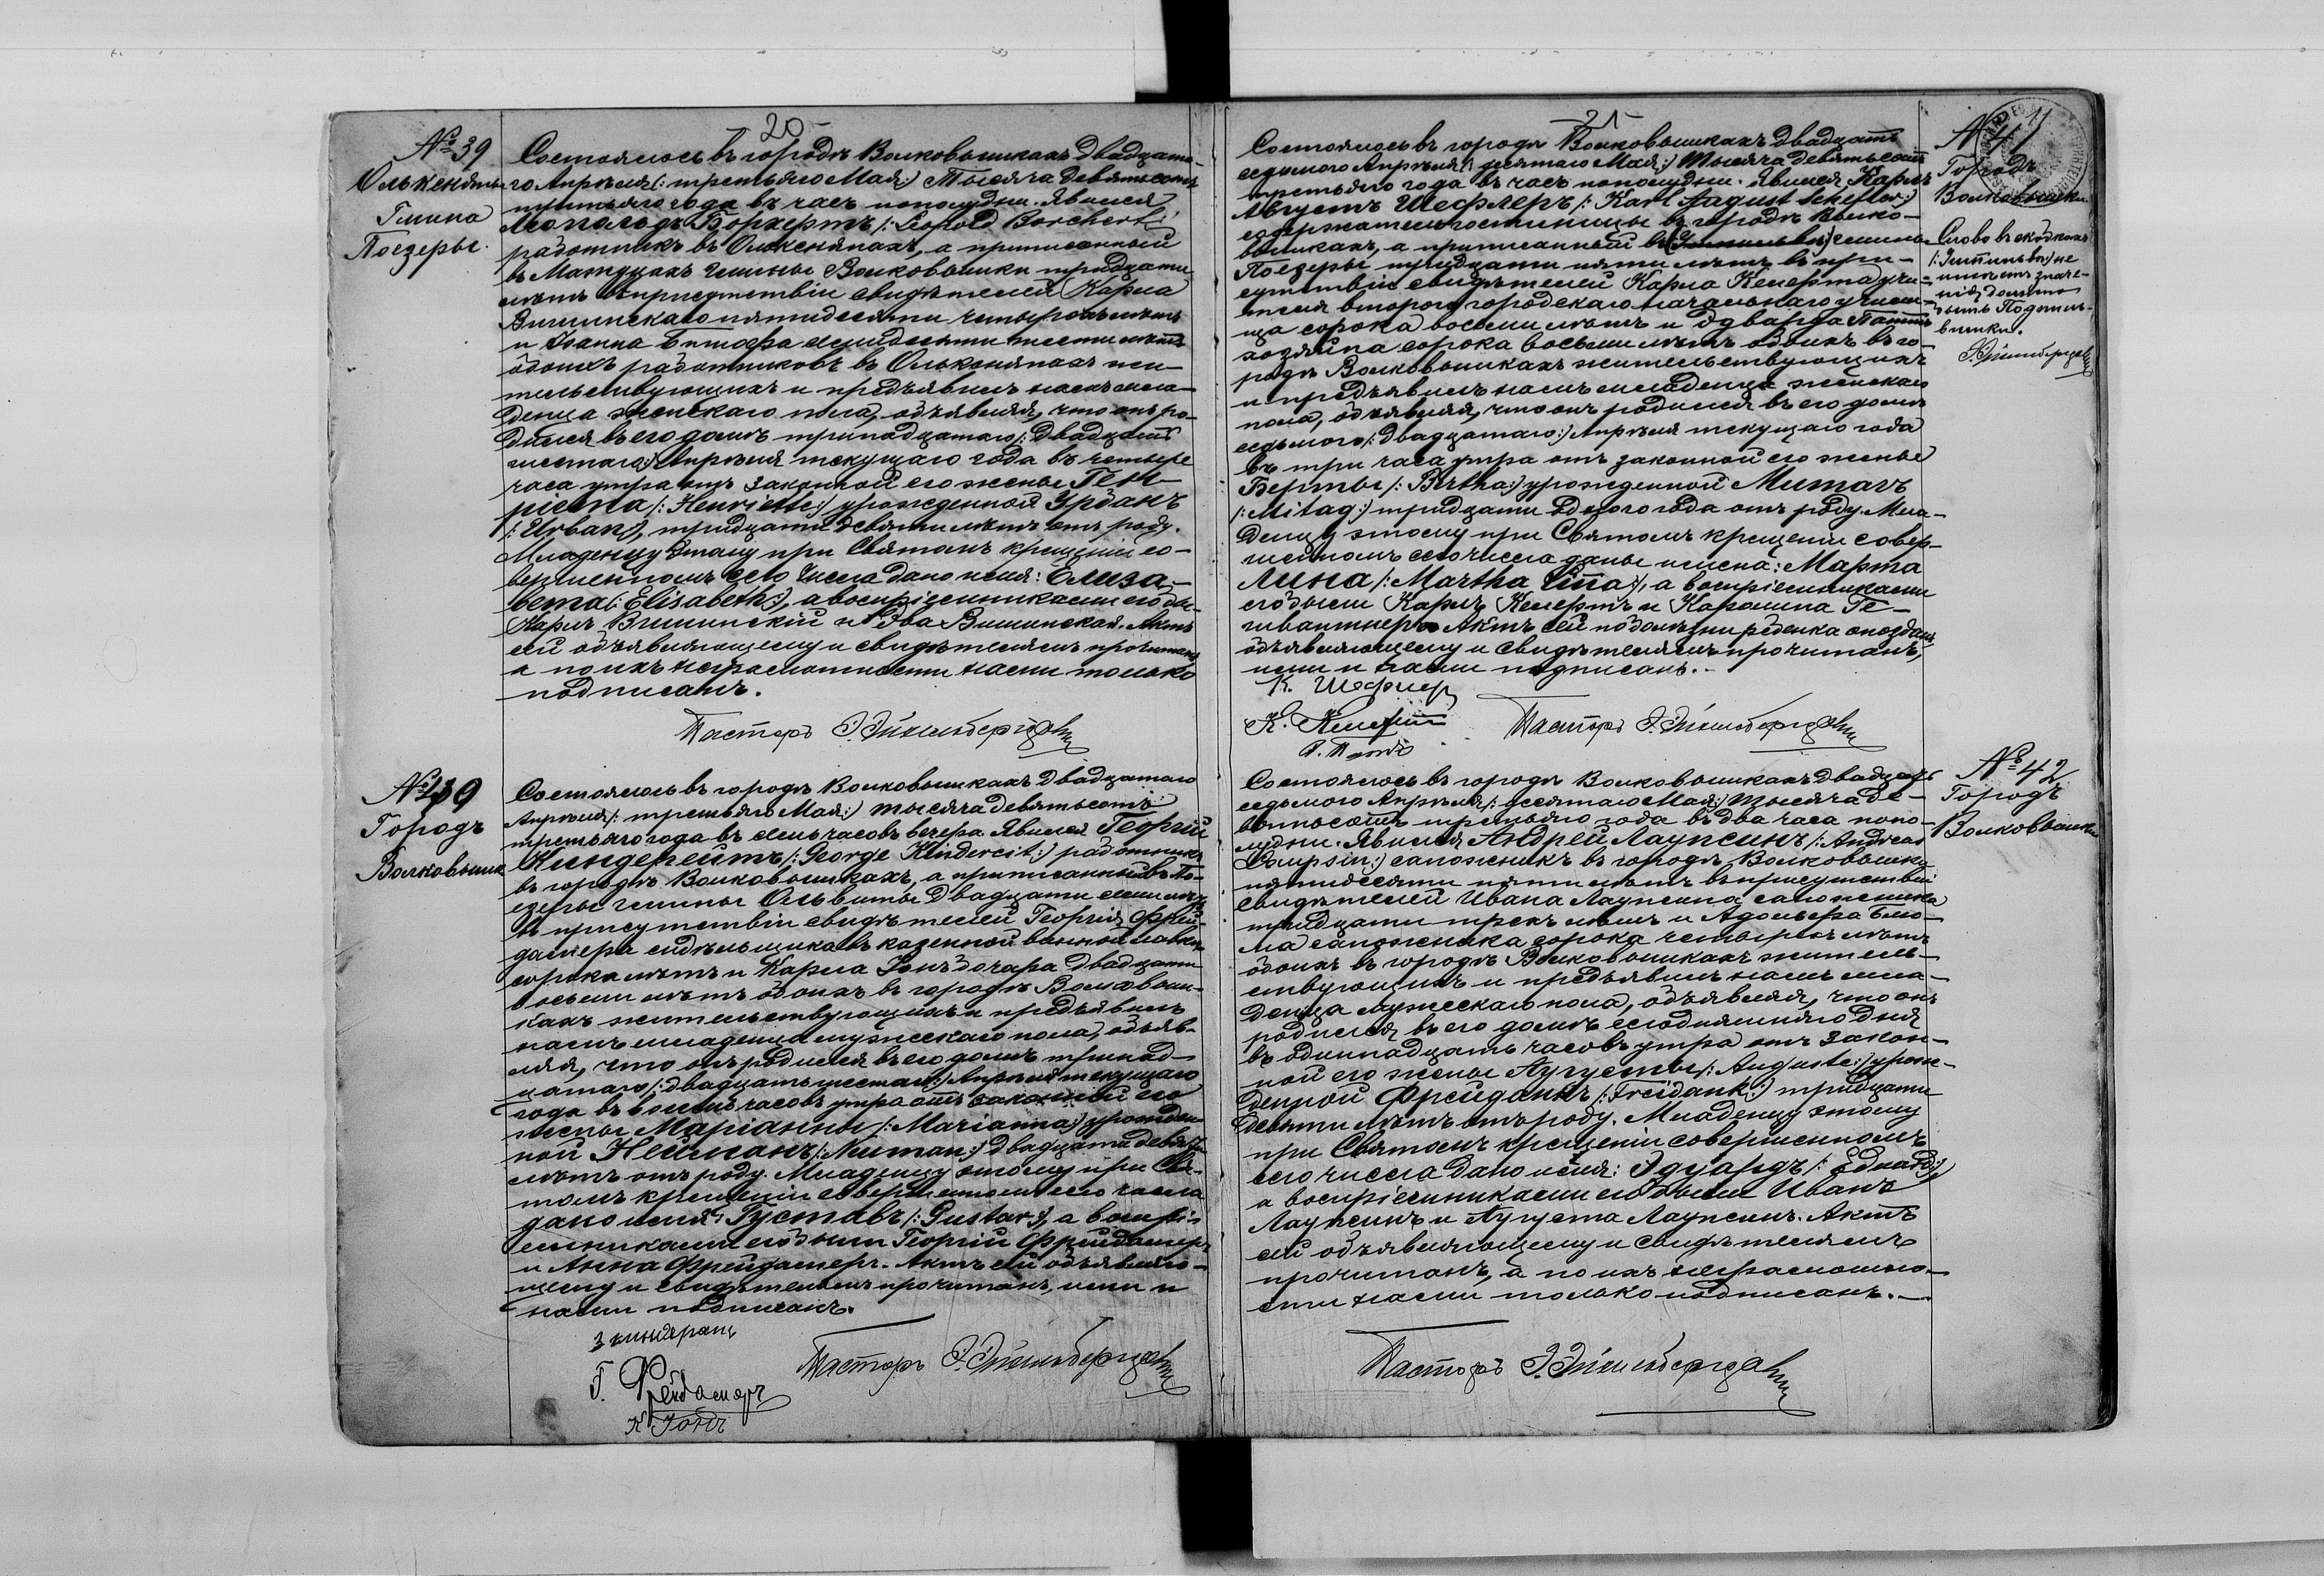 20
№ 39
Олькеняны
Гмина
Поезеры.
Состоялось въ городѣ Волковышкахъ двадцата-
го Апрѣля /: третьяго Мая :/ тысяча девятьсотъ
третьяго года въ часъ пополудни. Явился
Леопольдъ Борхертъ /: Leopold Borchert :/
работникъ въ Олькенянахъ, а приписанный
въ гмины Волковышки тридцати
лѣтъ въ присутствіи свидѣтелей Карла
Вишинскаго пятидесяти четырехъ лѣтъ
и Іоанна семидесяти шести лѣтъ
обоихъ работниковъ въ Олькенянахъ жи-
тельствующихъ и предъявилъ намъ мла-
денца женскаго пола, объявляя, что онъ ро-
дился въ его домѣ тринадцатаго /: двадцать
шестаго :/ Апрѣля текущаго года въ четыре
часа утра отъ законной его жены Ген-
ріетта /: Henriette :/ урожденной Урбанъ
/: Urban :/, тридцати девяти лѣтъ отъ роду.
Младенцу этому при Святомъ крещеніи со-
вершенномъ сего числа дано имя: Елиза-
вета /: Elisabeth :/, а воспріемниками его бы-
Карлъ Вишинскій и Ева Вишинская. Актъ
сей объявляющему и свидѣтелямъ прочитанъ
а по ихъ неграмотности нами только
подписанъ.
Пасторъ
№ 40
Городъ
Волковышк
Состоялось въ городѣ Волковышкахъ двадцатаго
Апрѣля /: третьяго Мая :/ тысяча девятьсотъ
третьяго года въ семь часовъ вечера. Явился Георгій
Киндерейтъ /: George Kindereit :/ работникъ
въ городѣ Волковышкахъ, а приписанный въ По-
езеры гмины Ольвиты двадцати семи лѣтъ
въ присутствіи свидѣтелей Георгія Фрей-
дамера сидѣльщика въ казенной винной лавки
сорока лѣтъ и Карла двадцати
восьми лѣтъ обоихъ въ городѣ Волковыш-
кахъ жительствующихъ и предъявилъ
намъ младенца мужескаго пола, объяв-
ляя, что онъ родился въ его домѣ тринад-
цатаго /: двадцать шестаго :/ Апрѣля текущаго
года въ восемь часовъ утра отъ законной его
жены Маріанны /: Marianna :/ урожден-
ной Нейманъ /: Neiman :/ двадцати девяти
лѣтъ отъ роду. Младенцу этому при Свя-
томъ крещеніи совершенномъ сего числа
дано имя: Густавъ /: Gustav :/, а воспрі-
емниками его были Георгій Фрейдамеръ
и Анна Фрейдамеръ. Актъ сей объявляю-
щему и свидѣтелямъ прочитанъ, ими и
нами подписанъ.
Г. Фрейдамеръ
Пасторъ
21
№ 41
Городъ
Волковышки
Слово въ скобкахъ
не
имѣетъ значе-
нія, должно
быть
Состоялось въ городѣ Волковышкахъ двадцать
седьмого Апрѣля /: десятаго Мая :/ тысяча девятьсотъ
третьяго года въ часъ пополудни. Явился Карлъ
Августъ Шефлеръ /: Karl August Schefler :/
содержатель гостиницы въ городѣ Волко-
вышкахъ, а приписанный въ гмины
Поезеры тридцати пяти лѣтъ въ при-
сутствіи свидѣтелей Карла Келерта учи-
теля второго городскаго начальнаго учили-
ща сорока восьми лѣтъ и Эдварда
хозяина сорока восьми лѣтъ обоихъ въ го-
родѣ Волковышкахъ жительствующихъ
и предъявилъ намъ младенца женскаго
пола, объявляя, что онъ родился въ его домѣ
седьмого /: двадцатаго :/ Апрѣля текущаго года
въ три часа утра отъ законной его жены
Берты /: Bertha :/ урожденной Митагъ
/: Mitag :/ тридцати одного года отъ роду. Мла-
денцу этому при Святомъ крещеніи совер-
шенномъ сего числа даны имена: Марта
Лина /: Martha Lina :/, а воспріемниками
его были Карлъ Келертъ и Каролина Ге-
Актъ сей по болѣзни ребенка опозданъ
объявляющему и свидѣтелямъ прочитанъ,
ими и нами подписанъ.
К. Шефлеръ
К. Келертъ
Пасторъ
№ 42
Городъ
Волковышки
Состоялось въ городѣ Волковышкахъ двадцать
седьмого Апрѣля /: десятаго Мая :/ тысяча де-
вятьсотъ третьяго года въ два часа попо-
лудни. Явился Андрей Лаупсинъ /: Andreas
Laupsin :/ сапожникъ въ городѣ Волковышки
пятидесяти пяти лѣтъ въ присутствіи
свидѣтелей Ивана Лаупсина сапожника
тридцати трехъ лѣтъ и Адольфа Блю-
ма сапожника сорока четырехъ лѣтъ
обоихъ въ городѣ Волковышкахъ житель-
ствующихъ и предъявилъ намъ мла-
денца мужескаго пола, объявляя, что онъ
родился въ его домѣ сегодняшняго дня
въ одиннадцать часовъ утра отъ закон-
ной его жены Аугусты /: Auguste :/ урож-
денной Фрейданкъ /: Freidank :/ тридцати
девяти лѣтъ отъ роду. Младенцу этому
при Святомъ крещеніи совершенномъ
сего числа дано имя: Эдуардъ /: Eduard :/,
а воспріемниками его были Иванъ
Лаупсинъ и Аугуста Лаупсинъ. Актъ
сей объявляющему и свидѣтелямъ
прочитанъ, а по ихъ неграмотно-
сти нами только подписанъ.
Пасторъ